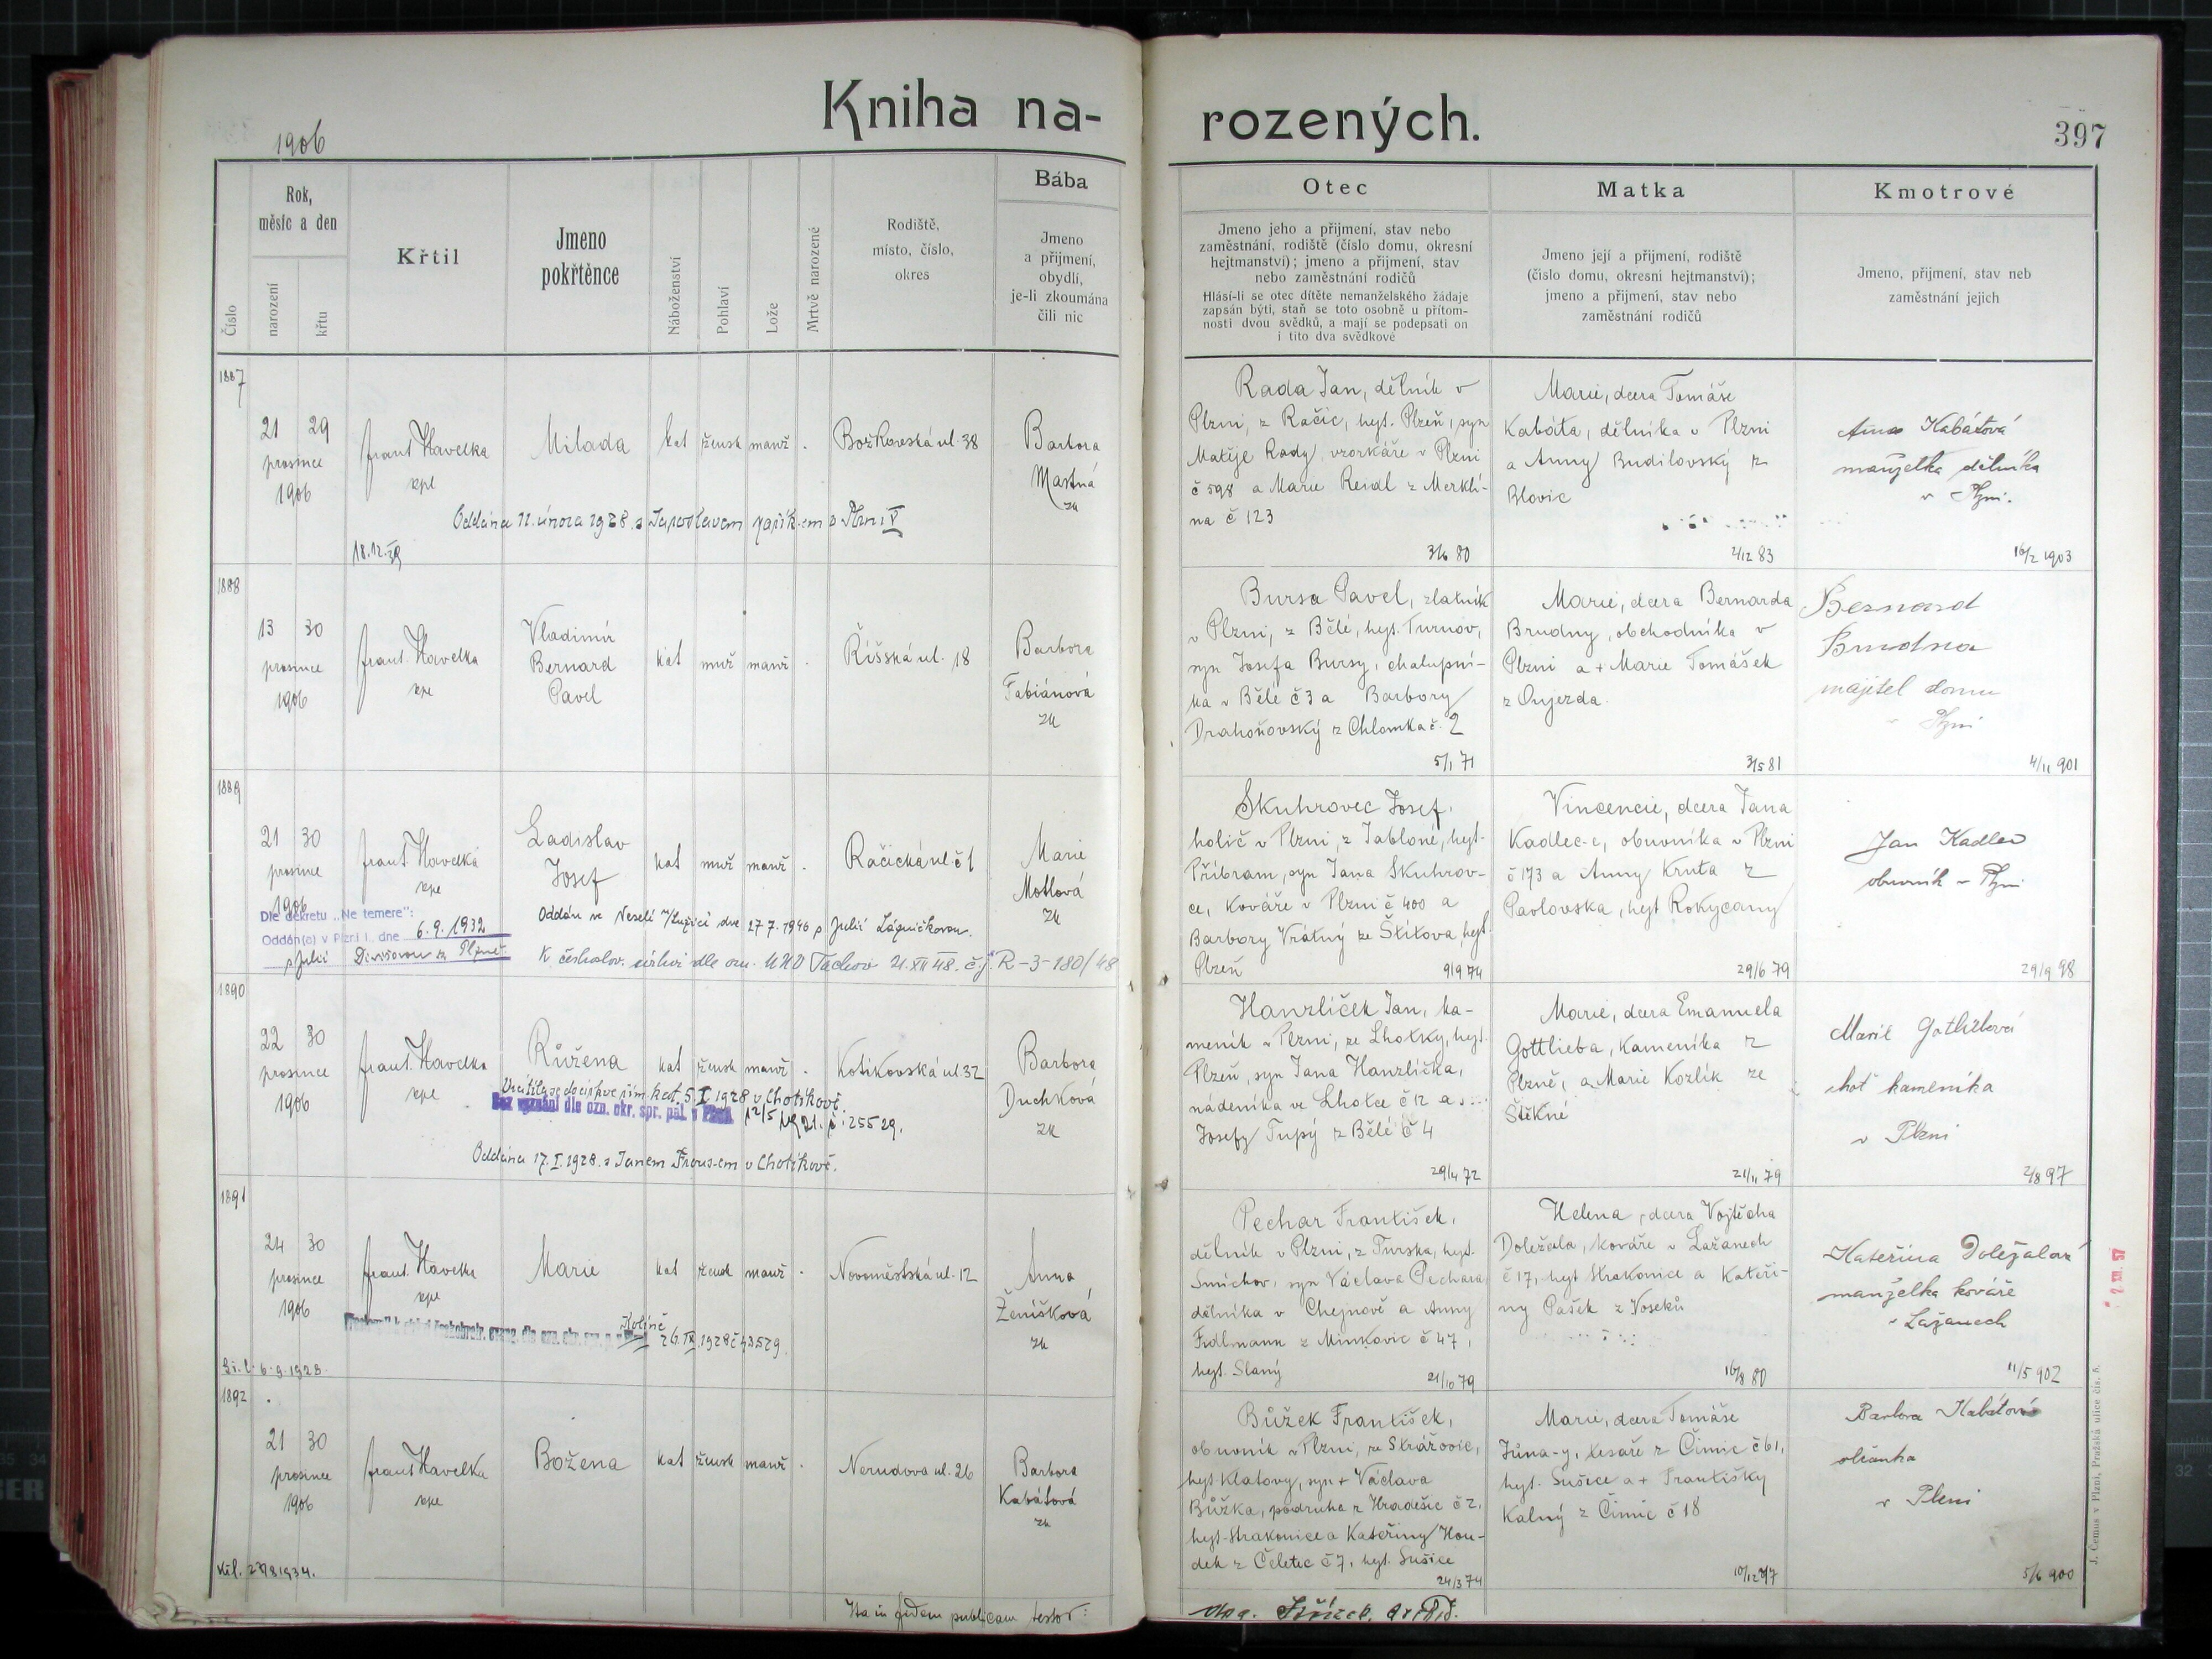 Kniha na-
rozených.
397
1906
Číslo
Rok,
měsíc a den
narození
křtu
Křtil
Jmeno
pokřtěnce
Náboženství
Pohlaví
Lože
Mrtvě narozené
Rodiště,
místo, číslo,
okres
Bába
Jmeno
a přijmení,
obydlí,
je-li zkoumána
čili nic
Otec
Jmeno jeho a přijmení, stav nebo
zaměstnání, rodiště (číslo domu, okresní
hejtmanství); jmeno a přijmení, stav
nebo zaměstnání rodičů
Hlásí-li se otec dítěte nemanželského žádaje
zapsán býti, staň se toto osobně u přítom-
nosti dvou svědků, a mají se podepsati on
i tito dva svědkové
Matka
Jmeno její a přijmení, rodiště
(číslo domu, okresní hejtmanství);
jmeno a přijmení, stav nebo
zaměstnání rodičů
Kmotrové
Jmeno, přijmení, stav neb
zaměstnání jejich
1887
21 29
prosince
1906
frant. Havelka
kpl
Milada
kat žensk manž .
Božkovská ul. 38
Barbora
Mastná
zk
Oddána 11. února 1928 s Jaroslavem
18.12.39
Rada Jan, dělník v
Plzni, z Račic, hejt. Plzeň, syn
Matěje Rady, vzorkáře v Plzni
č 598 a Marie Reidl z Merklí-
na č 123
3/6 80
Marie, dcera Tomáše
Kabáta, dělníka v Plzni
a Anny Budilovský z
Blovic
2/12 83
Anna Kabátová
manželka dělníka
v Plzni.
16/2 1903
1888
13 30
prosince
1906
frant. Havelka
kpl
Vladimír
Bernard
Pavel
kat muž manž .
Říšská ul. 18
Barbora
Fabiánová
zk
Bursa Pavel, zlatník
v Plzni, z Bělé, hejt. Turnov,
syn Josefa Bursy, chalupní-
ka v Bělé č 3 a Barbory
Drahoňovský z Chlomka č. 2
5/1 71
Marie, dcera Bernarda
Brudny, obchodníka v
Plzni a + Marie Tomášek
z Oujezda.
3/5 81
Bernard
Brudna
majitel domu
v Plzni
4/11 901
1889
21 30
prosince
1906
frant. Havelka
kpl
Ladislav
Josef
kat muž manž .
Račická ul. č 1
Marie
Motlová
zk
Dle dekretu „Ne temere":
Oddán(a) v Plzni I., dne 6.9.1932
s Julií Divišovou z Plzně.
Oddán ve Veselí n/Lužicí dne 27.7.1946 s Julií
K českoslov. církvi dle ozn. UNO Tachov 21.XII 48. č.j. R-3-180/48
Skuhrovec Josef,
holič v Plzni, z Jabloné, hejt.
Příbram, syn Jana Skuhrov-
ce, kováře v Plzni č 400 a
Barbory Vrátný ze Štítova, hejt.
Plzeň
9/9 74
Vincencie, dcera Jana
Kadlec-e, obuvníka v Plzni
č 173 a Anny Kruta z
Pavlovska, hejt Rokycany
29/6 79
Jan Kadlec
obuvník v Plzni
29/9 98
1890
22 30
prosince
1906
frant. Havelka
kpl
Růžena
kat žensk manž .
Kotikovská ul. 32
Barbora
Duchková
zk
Vrátila se do církve řím. kat. 5.I 1928 v Chotíkově.
Bez vyznání dle ozn. okr. spr. pol. v Plzni 12/5 1921. č. 25529.
Oddána 17.I.1928 s Janem Frous-em v Chotíkově.
Hanzlíček Jan, ka-
meník v Plzni, ze Lhotky, hejt.
Plzeň, syn Jana Hanzlíčka,
nádeníka ve Lhotce č 12 a
Josefy Tupý z Bělé č 4
29/4 72
Marie, dcera Emanuela
Gottlieba, kameníka z
Plzně, a Marie Kozlík ze
Štěkně
21/11 79
Marie Gottliebová
choť kameníka
v Plzni
2/8 97
1891
24 30
prosince
1906
frant. Havelka
kpl
Marie
kat žensk manž .
Novoměstská ul. 12
Anna
Ženíšková
zk
26.IX.1928 č 43529.
6.9.1928.
Pechar František,
dělník v Plzni, z Turska, hejt.
Smíchov, syn Václava Pechara,
dělníka v Chejnově a Anny
Fidlmann z Minkovic č 47,
hejt. Slaný
21/10 79
Helena, dcera Vojtěcha
Doležala, kováře v Lažanech
č 17, hejt Strakonice a Kateři-
ny Pašek z Voseků
16/8 80
Kateřina Doležalová
manželka kováře
v Lažanech
11/5 902
1892
21 30
prosince
1906
frant Havelka
kpl
Božena
kat žensk manž .
Nerudova ul. 26
Barbora
Kabátová
zk
Bůžek František,
obuvník v Plzni, ze Strážovic,
hejt Klatovy, syn + Václava
Bůžka, podruha z Hradešic č 2,
hejt. Strakonice a Kateřiny Hou-
dek z Čeletic č 7, hejt. Sušice
24/3 74
Marie, dcera Tomáše
Jůna-y, tesaře z Čimic č 61,
hejt. Sušice a + Františky
Kalný z Čimic č 18
10/12 77
Barbora Kabátová
občanka
v Plzni
5/6 900
Ita in fidem publicam testor:
J. Čemus v Plzni, Pražská ulice čís. 5.